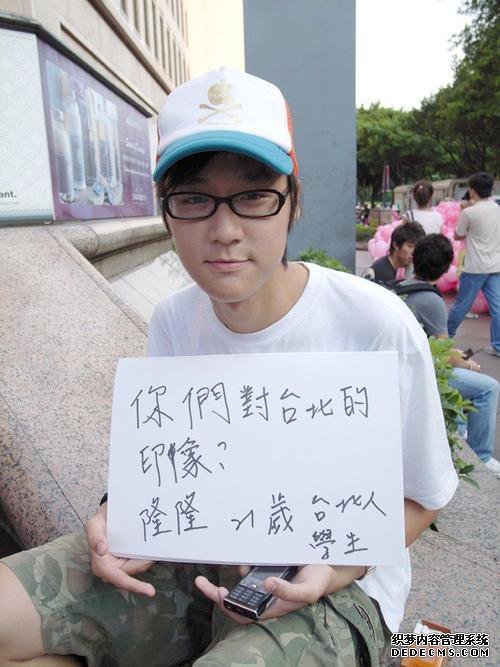 你們對台北的
印像?
隆隆 21歲 台北人
學生
ant.
织梦内容管理系统
DEDECMS.COM